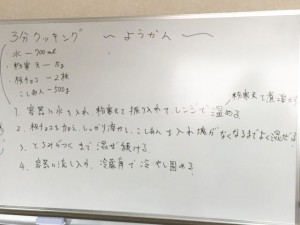 3分クッキング 〜ようかん〜
水ー700ml
粉寒天ー8g
板チョコー2枚
こしあんー500g
粉寒天て煮溶か
1. 容器に水を入れ、粉寒天を振り入れてレンジで温める
2. 板チョコを加え、しっかり溶かし、こしあんを入れ塊がなくなるまでよく混ぜる
3. とろみがつくまで混ぜ続ける。
4. 容器に流し入れ、冷蔵庫で冷やし固める。